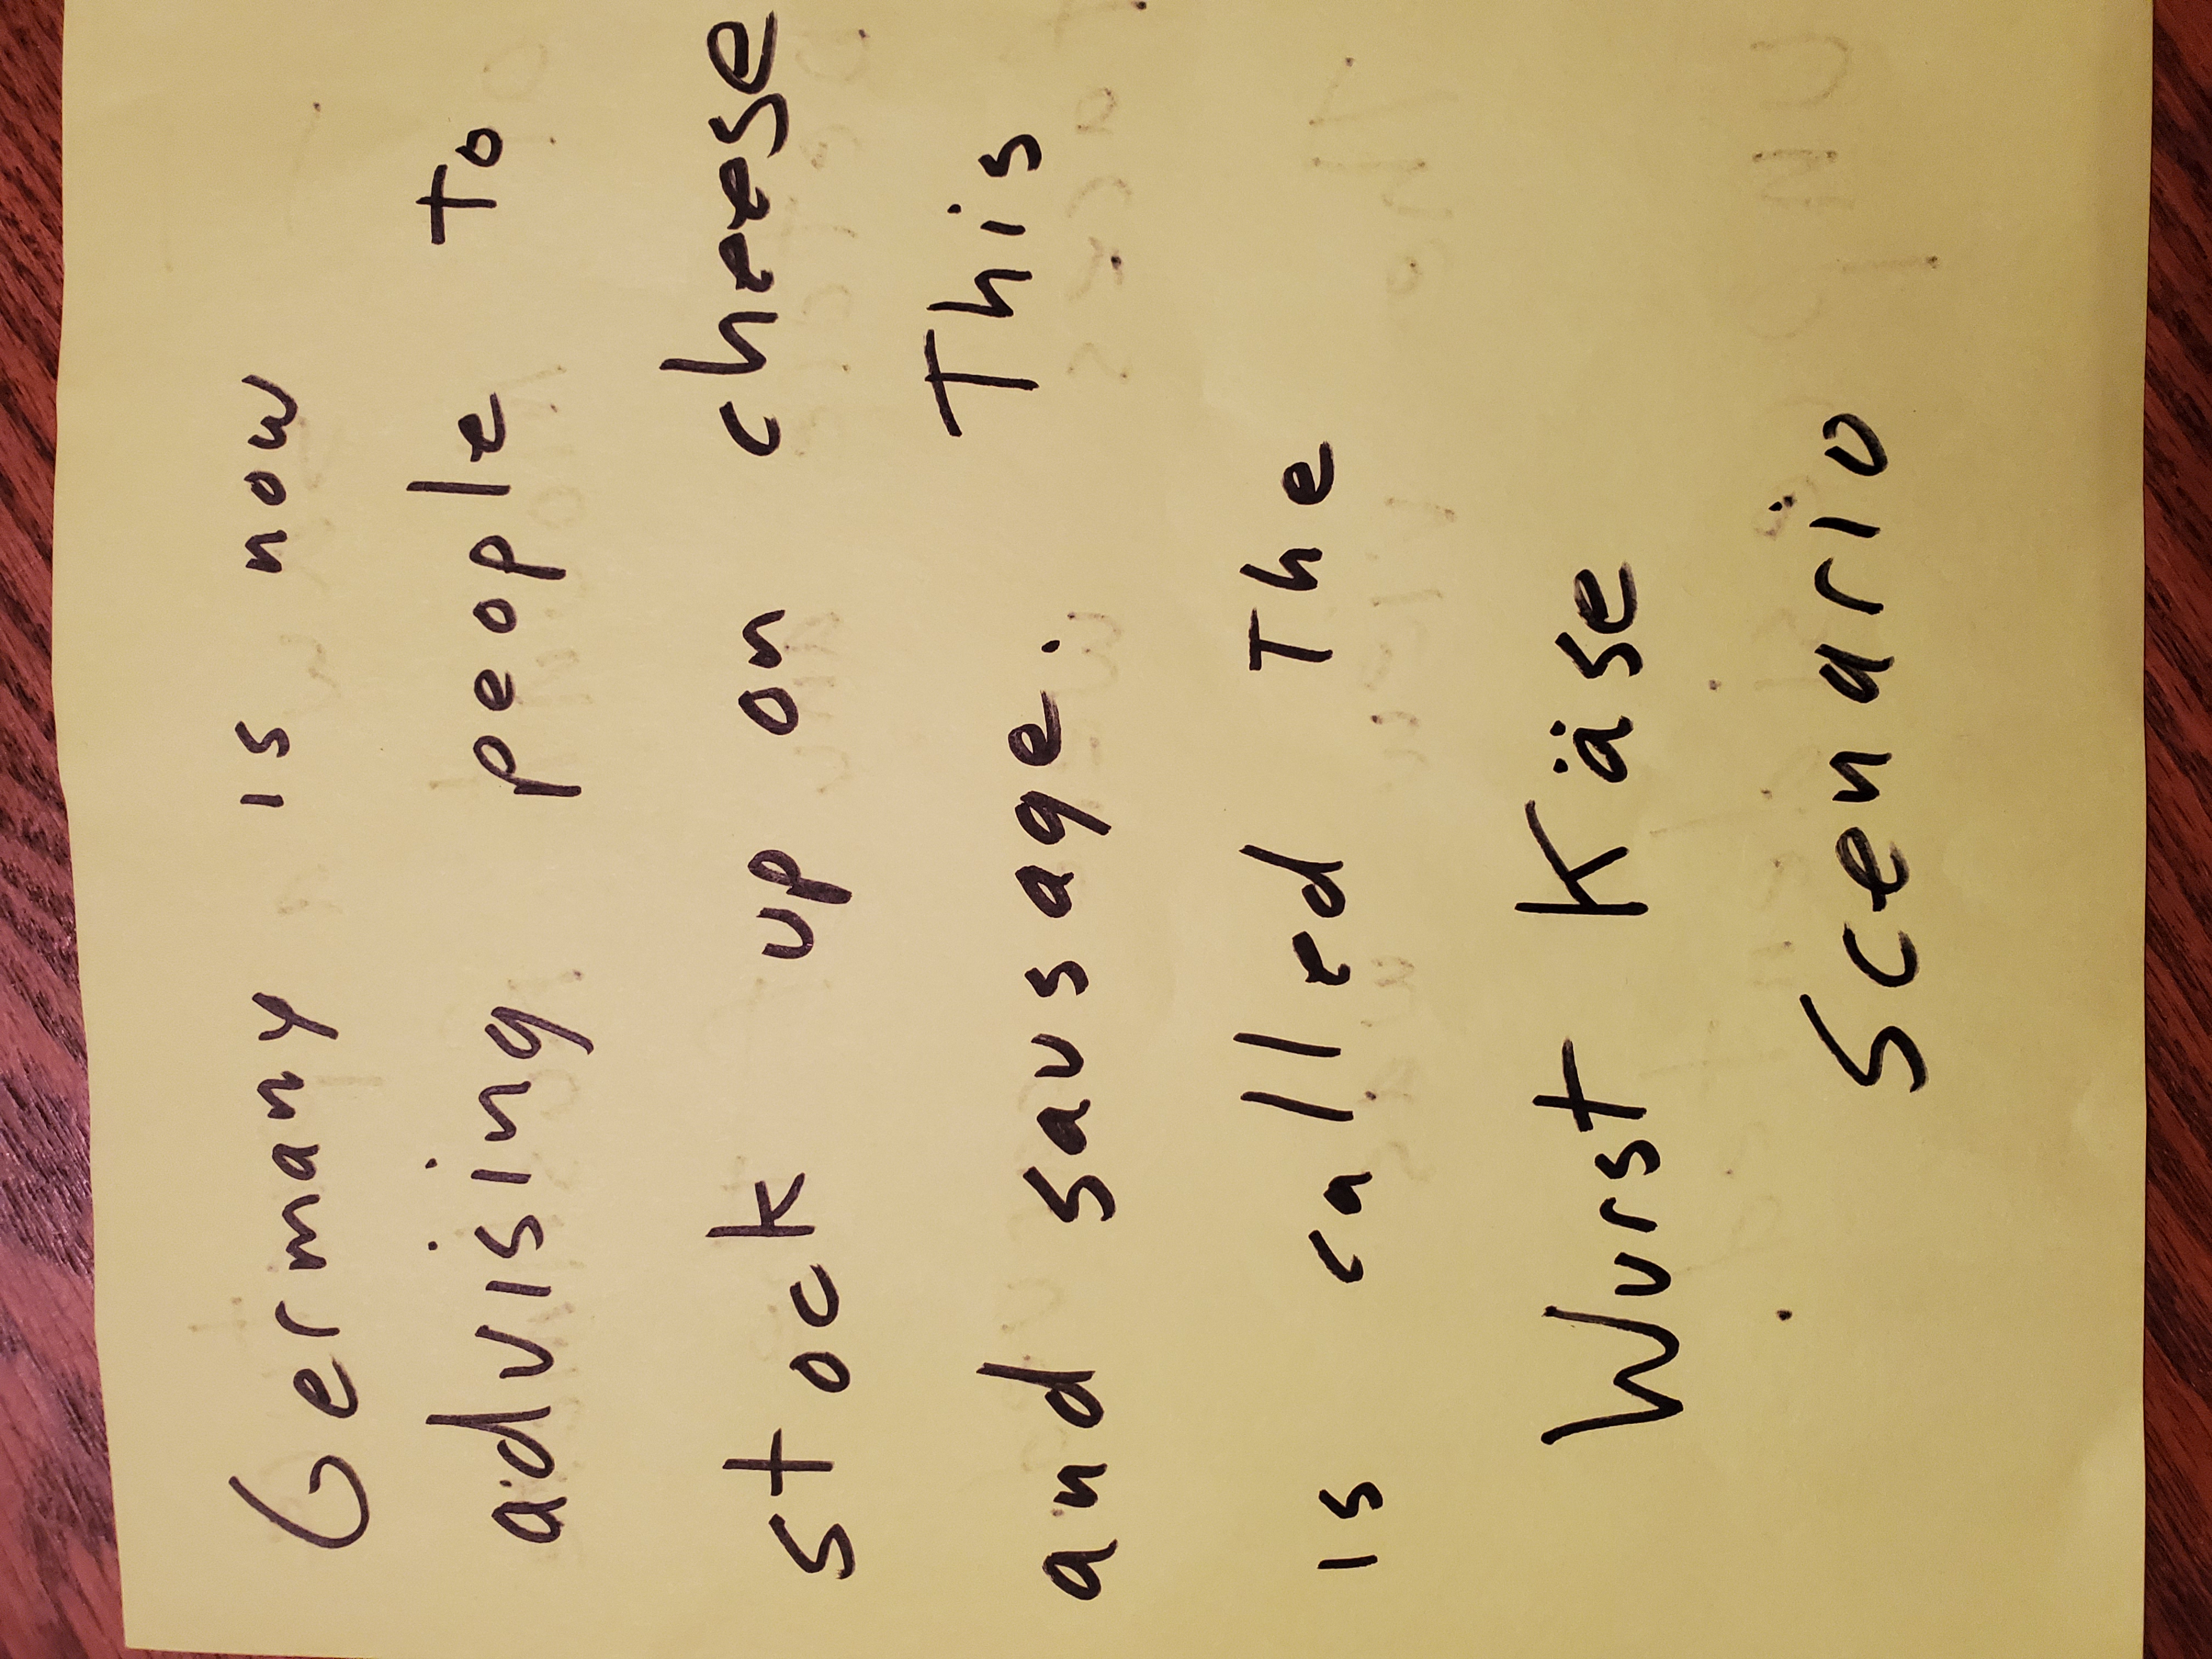 Germany is now
advising people to
stock up on cheese
and sausage. This
is called The
Wurst Käse
Scenario